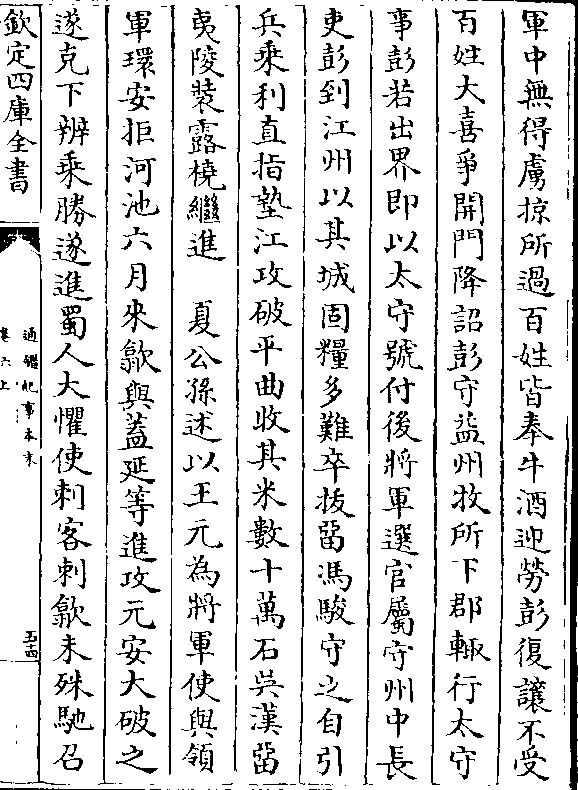 軍中無得虜掠所過百姓皆奉牛酒迎勞彭復讓不受
百姓大喜爭開門降詔彭守益州牧所下郡輙行太守
事彭若出界即以太守號付後將軍選官屬守州中長
吏彭到江州以其城固糧多難卒拔留馮駿守之自引
兵乘利直指墊江攻破平曲收其米數十萬石吳漢留
夷陵裝露橈繼進　夏公孫述以王元為將軍使與領
軍環安拒河池六月來歙與蓋延等進攻元安大破之
遂克下辨乘勝遂進蜀人大懼使刺客刺歙未殊馳召
欽定四庫全書
通鑑紀事本末
卷六上
五十四